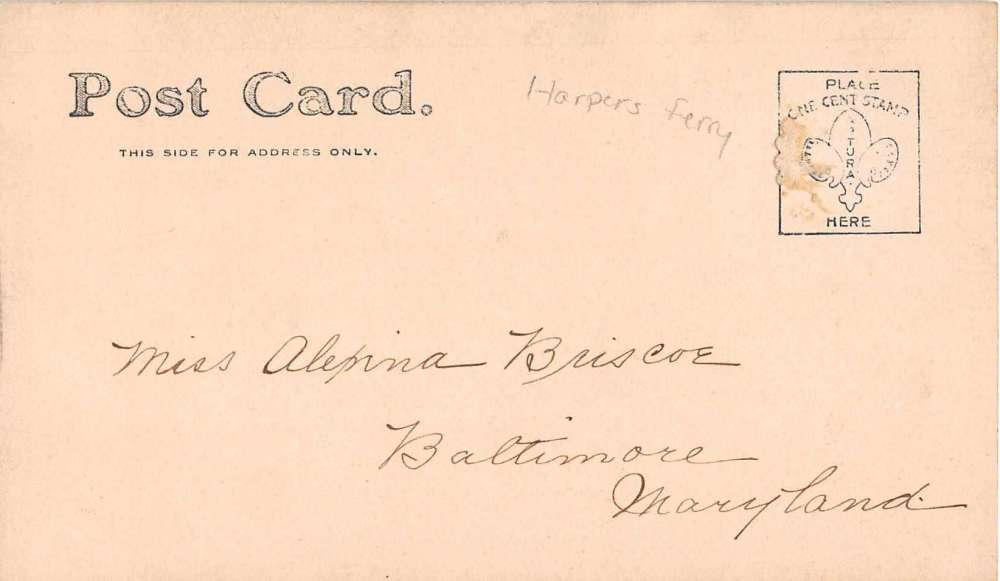 Post Card.
THIS SIDE FOR ADDRESS ONLY.
Harpers Ferry
PLACE
ONE CENT STAMP
HERE
Miss Alepina Briscoe
Baltimore
Maryland